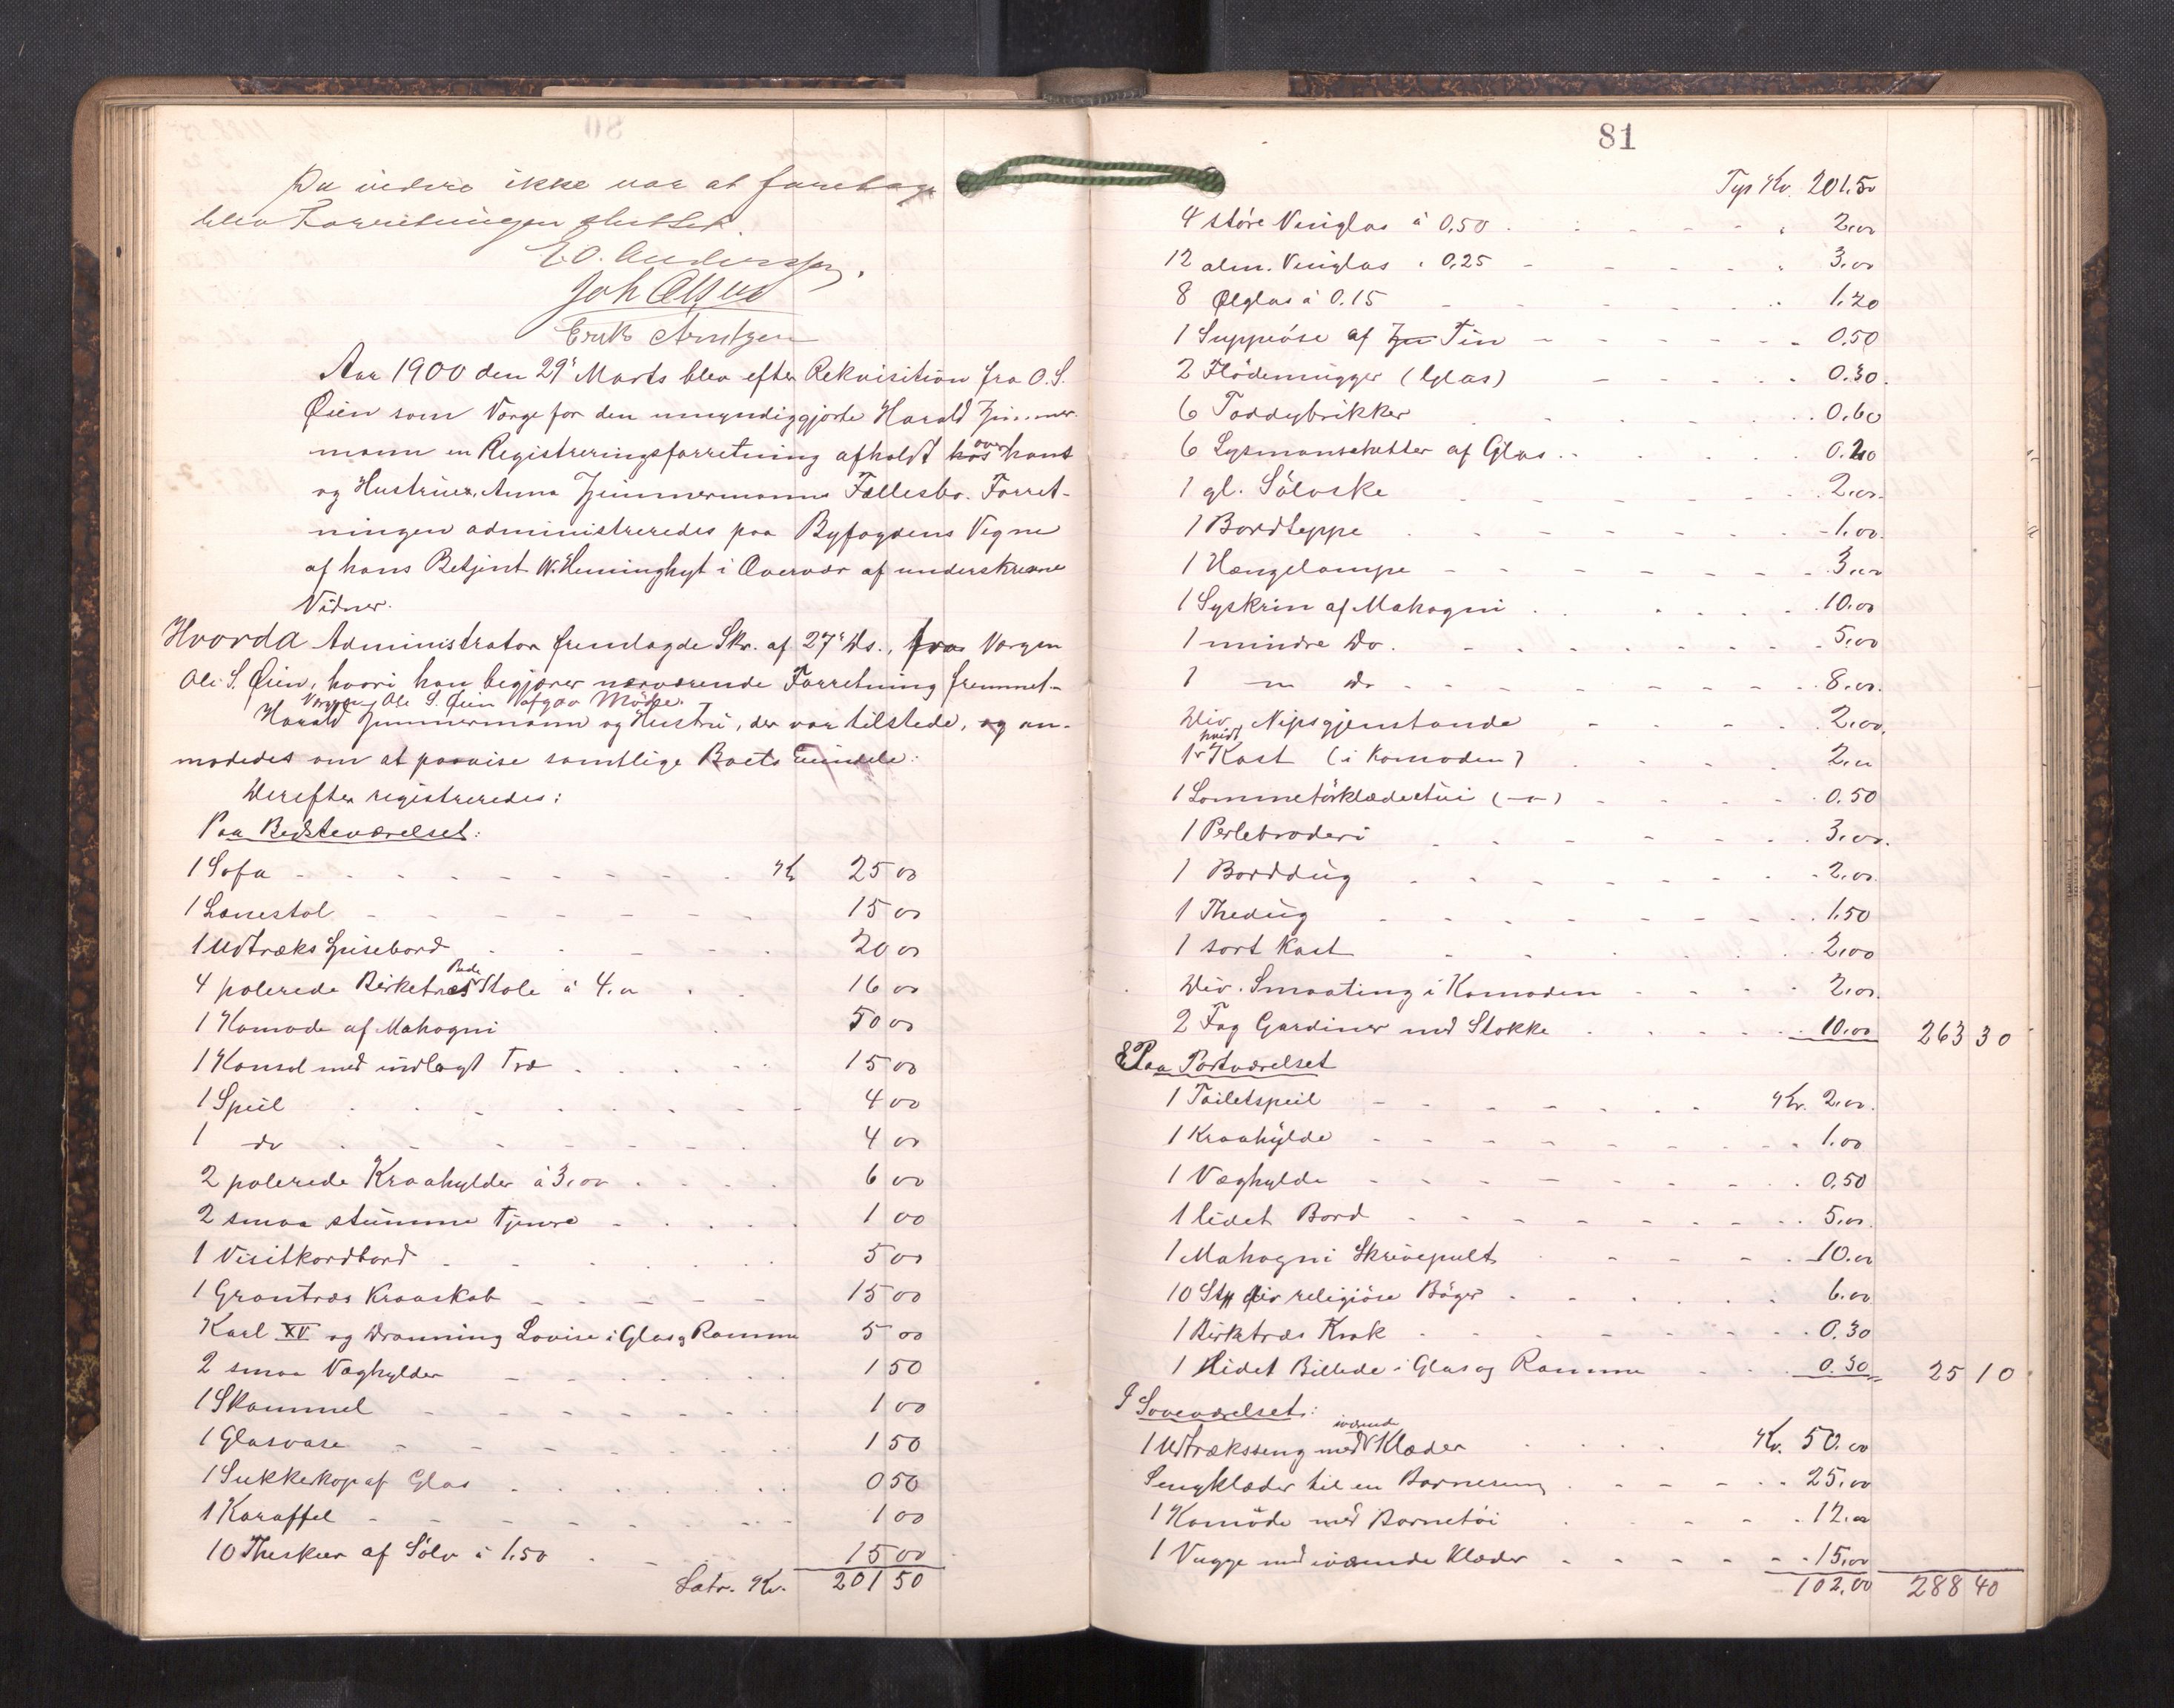 Da videre ikke var at foretage
blev Forretningen sluttet.
E.O. Anderssen.
Joh Olsen
Erik Arntzen
Aar 1900 den 29' Marts blev efter Rekvisition fra O.S.
Øien som Værge for den umyndiggjorte Harald Zimmer-
mann en Registreringsforretning afholdt hos over hans
og Hustrues, Anna Zimmermanns Fællesbo. Forret-
ningen administreredes paa Byfogdens Vegne
af hans Betjent W. Heminghyt i Overvær af underskrevne
Vidner.
Hvorda Administrator fremlagde Skr. af 27' Ds., fra Værgen
Ole S. Øien, hvori han begjærer nærværende Forretning fremmet.
Værgen Ole S. Øien afgav Møde.
Harald Zimmermann og Hustru, der var tilstede, og an-
modedes om at paavise samtlige Boets Eiendele.
Derefter registreredes:
Paa Bedsteværelset:
1 Sofa Kr 25 00
1 Lænestol 15 00
1 Udtræks Spisebord 20 00
4 polerede Birketræs Stole á 4.00 16 00
1 Komode af Mahogni 50 00
1 Konsol med indlagt Træ 15 00
1 Speil 4 00
1 do 4 00
2 polerede Kraahylder á 3,00 6 00
2 smaa stumme Tjenere 1 00
1 Visitkordbord 5 00
1 Grantræs Kraaskab 15 00
Karl XV og Dronning Lovise i Glas og Ramme 5 00
2 smaa Væghylder 1 50
1 Skammel 1 00
1 Glasvase 1 50
1 Sukkerkop af Glas 0 50
1 Karaffel 1 00
10 Theskeer af Sølv á 1.50 15 00
Latr. Kr. 201 50
81
Tr Kr. 201.50
4 störe Vinglas á 0,50 2,00
12 alm. Vinglas " 0,25 3,00
8 Ølglas á 0.15 1.20
1 Suppeöse af Zn Tin 0.50
2 Flödemugger (Glas) 0.30
6 Toddybrikker 0.60
6 Lysmanschetter af Glas 0.20
1 gl. Sölvske 2,00
1 Bordteppe 1.00
1 Hængelampe 3,00
1 Syskrin af Mahogni 10.00
1 mindre Do. 5,00
1 " Do 8.00
Div. Nipsgjenstande 2,00
1 hvidt Kast (i Komoden) 2,00
1 Lommetörklædeetui ( " ) 0.50
1 Perlebroderi 3,00
1 Borddug 2.00
1 Thedug 1.50
1 sort Kast 2,00
Div. Smaating i Komoden 2,00
2 Fag Gardiner med Stokke 10.00 263 30
Paa Portværelset
1 Toiletspeil Kr. 2,00
1 Kraahylde 1.00
1 Væghylde 0.50
1 lidet Bord 5,00
1 Mahogni Skrivepult 10.00
10 Stk div religiöse Böger 6.00
1 Birketræs Krak 0.30
1 lidet Billede i Glas og Ramme 0.30 25 10
I Soveværelset:
1 Udtræksseng med iværende Klæder Kr. 50.00
Sengklæder til en Barneseng 25,00
1 Komöde med Barnetöi 12.00
1 Vugge med iværende Klæder 15,00
102,00 288 40